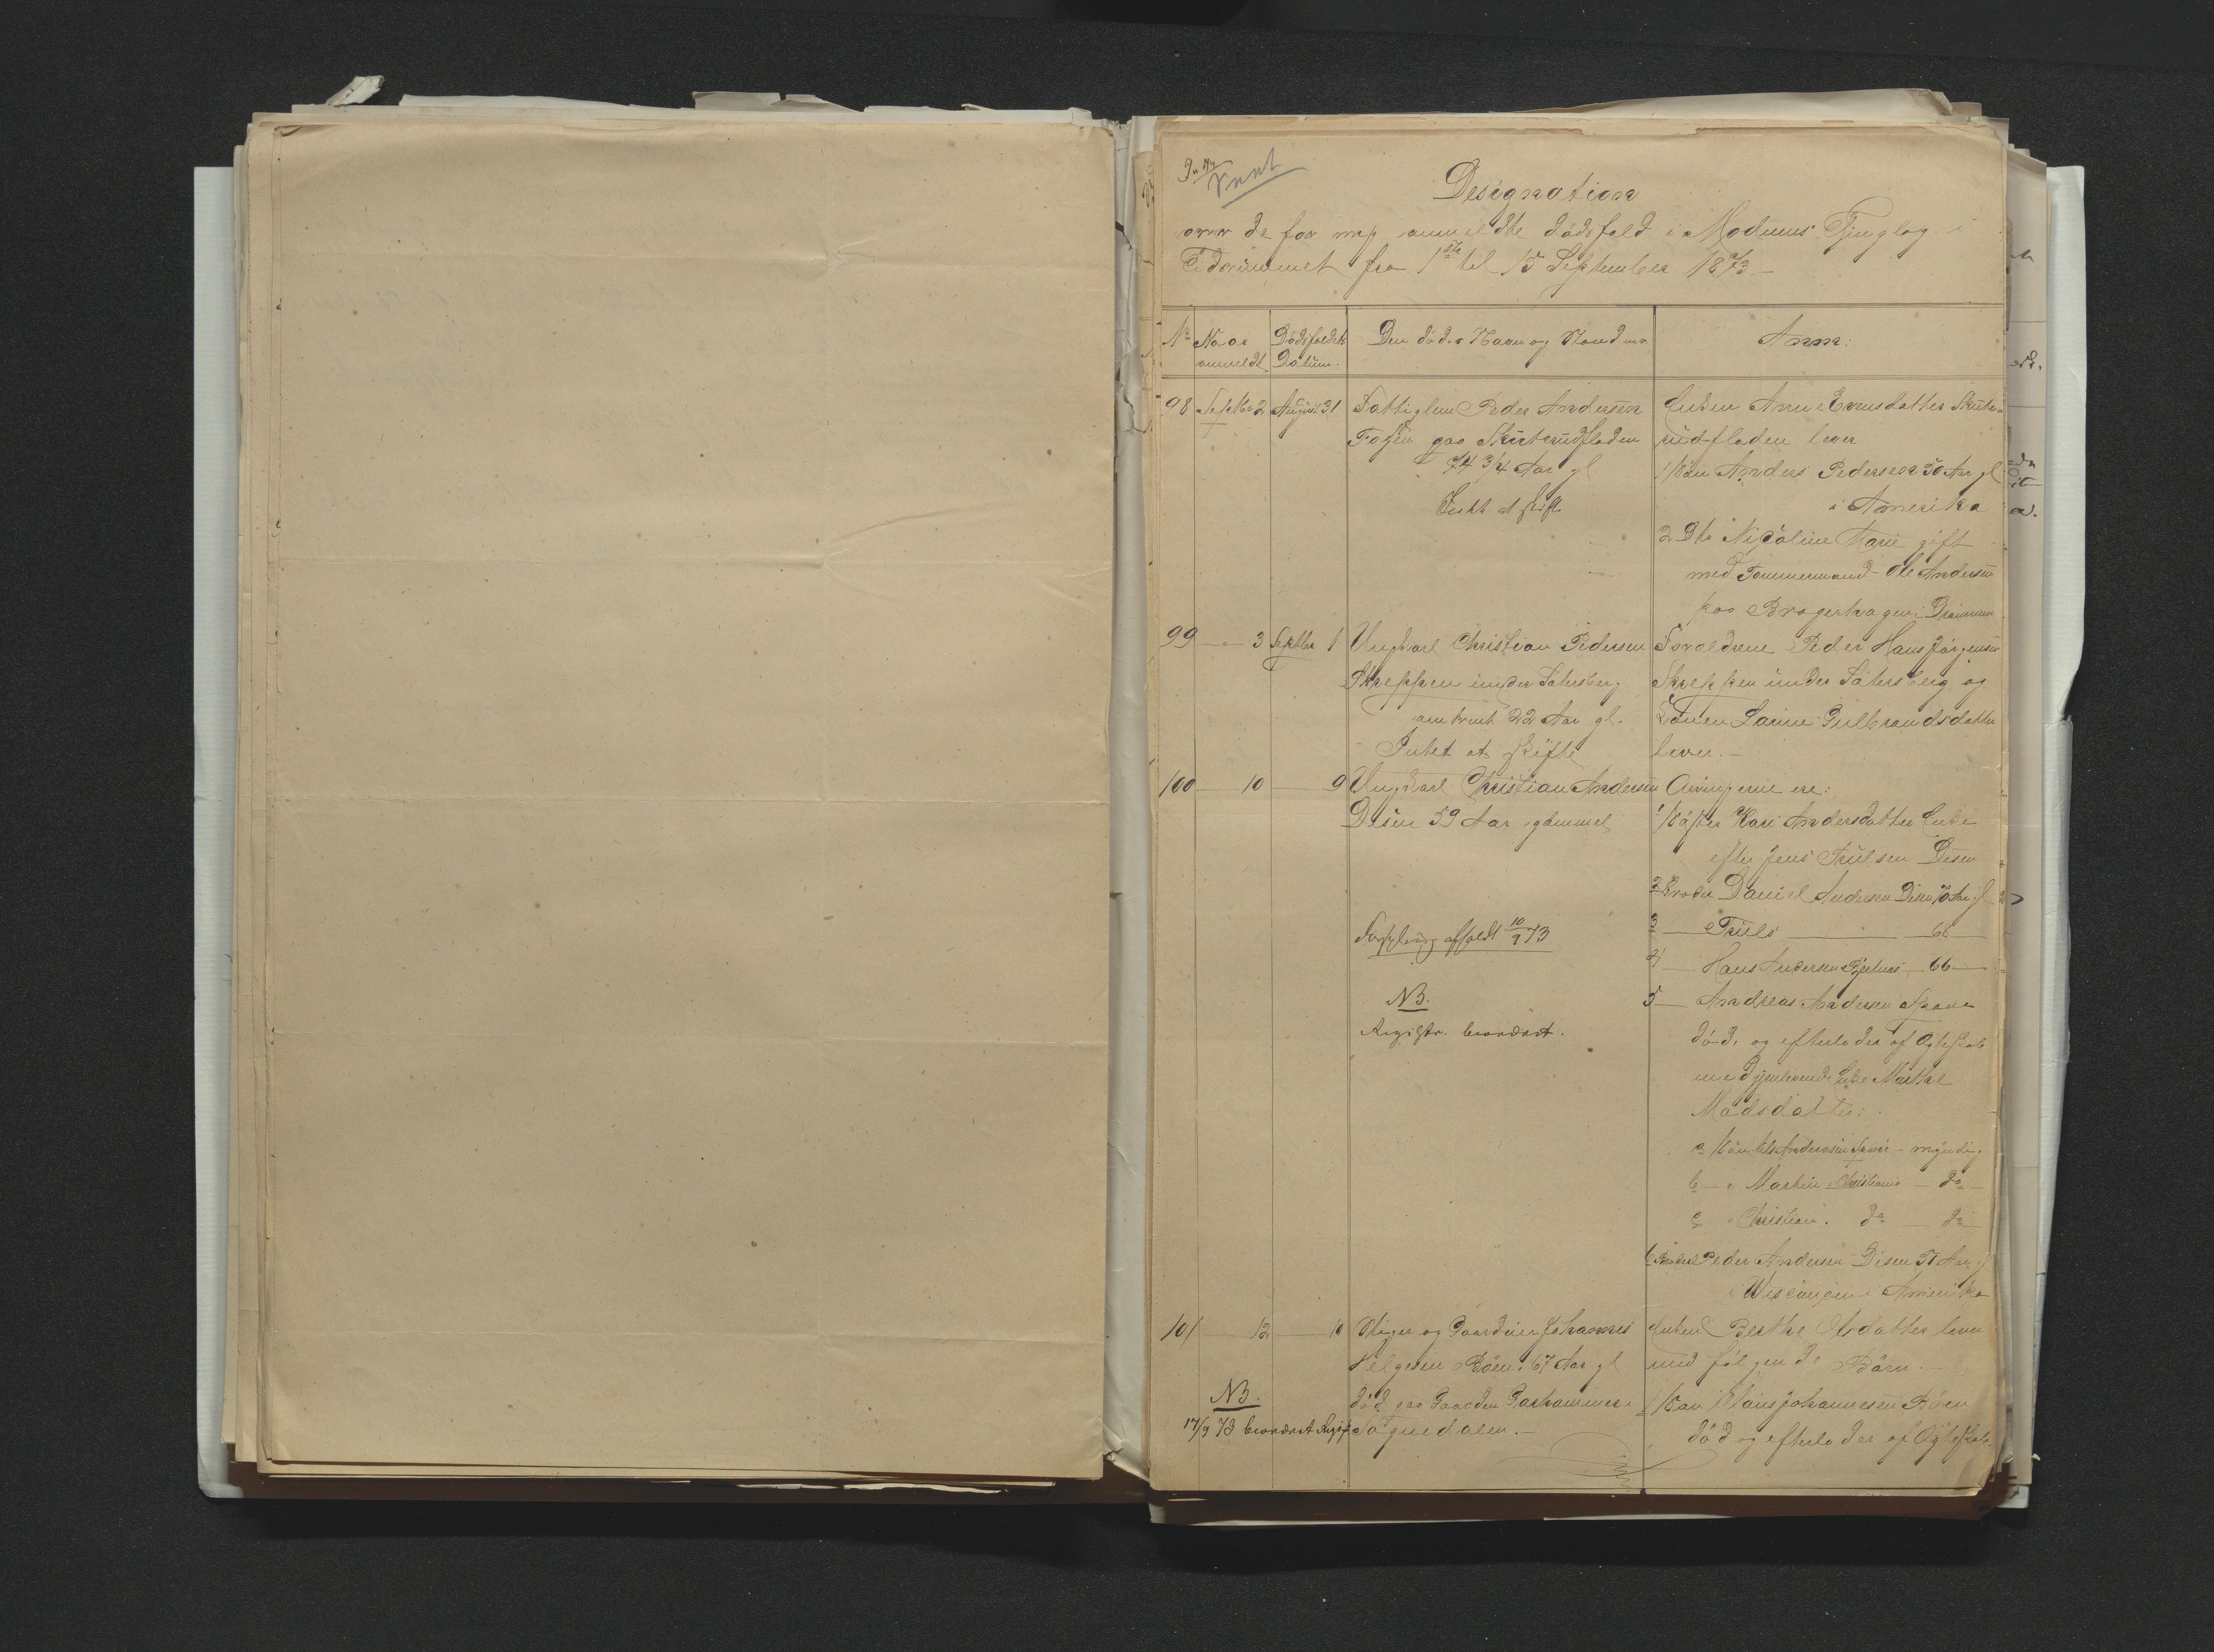 Designation
over de for mig anmeldte Dødsfald i Modums Tinglag i
Tidsrummet fra 1ste til 15 September 1873.-
No Naar anmeldt Dødsfaldets Datum. Den dødes Navn og Stand m.v. Anm:
98 Septbr 2 August 31 Fattiglem Peder Andersen
paa Skuterudfladen
74 3/4 Aar gl
Intet at skifte
Enken Anne Evensdatter Skute-
rudfladen lever
1 Søn Anders Pedersen 50 Aar gl
i Amerika
2 Dtr Nicoline Marie gift
med Tømmermand Ole Andersen
paa Bragernes i Drammen
99 - " 3 Septbr 1 Ungkarl Christian Pedersen
Skreppen under Sätersberg
omtrent 22 Aar gl.
Intet at skifte
Forældrene Peder Hans Jørgensen
Skreppen under Sätersberg og
Konen Karine Gulbrandsdatter
lever.-
100 - 10 - 9 Ungkarl Christian Andersen
Disen 59 Aar gammel
Forsegling afholdt 10/9 73
NB.
Registr. beordret.
Arvingerne ere:
1 Søster Kari Andersdatter Enke
efter Jens Trulsen Disen
2 Broder Daniel Andersen Disen 70 Aar gl
3 - Truls - 68 -
4 - Hans Andersen - 66 -
5 - Andreas Andersen
død, og efterlader af Ægteskab
med gjenlevende Enke Marthe
Madsdatter:
a Søn Andreasen - myndig
b - " Martin Christiania - do -
c - " Christian. do - do
6 Broder Peder Andersen Disen 51 Aar gl
i Wisconsin i Amerika
101 - 12 - 10 Eier og Gaardeier Johannes
Helgesen Bøen. 67 Aar gl
død paa Gaarden i
Sognedalen.-
NB.
17/9 73 beordret Registr.
Enken Berthe Olsdatter lever
med følgende Børn.-
1 Søn Hans Johannesen Bøen
død og efterlader af Ægteskab